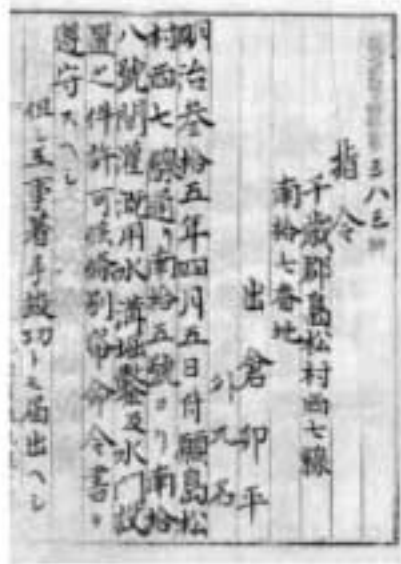 三八三
指令
千歳郡島松村西七線
南拾七番地
出倉卯平
外九名
明治参拾五年四月五日付願島松
村西七線通リ南拾五號ヨリ南拾
八號間灌漑用水溝堀鑿及水門設
置之件許可候條別帋命令書ヲ
遵守スヘシ
但シ工事着手竣功トモ届出ヘシ